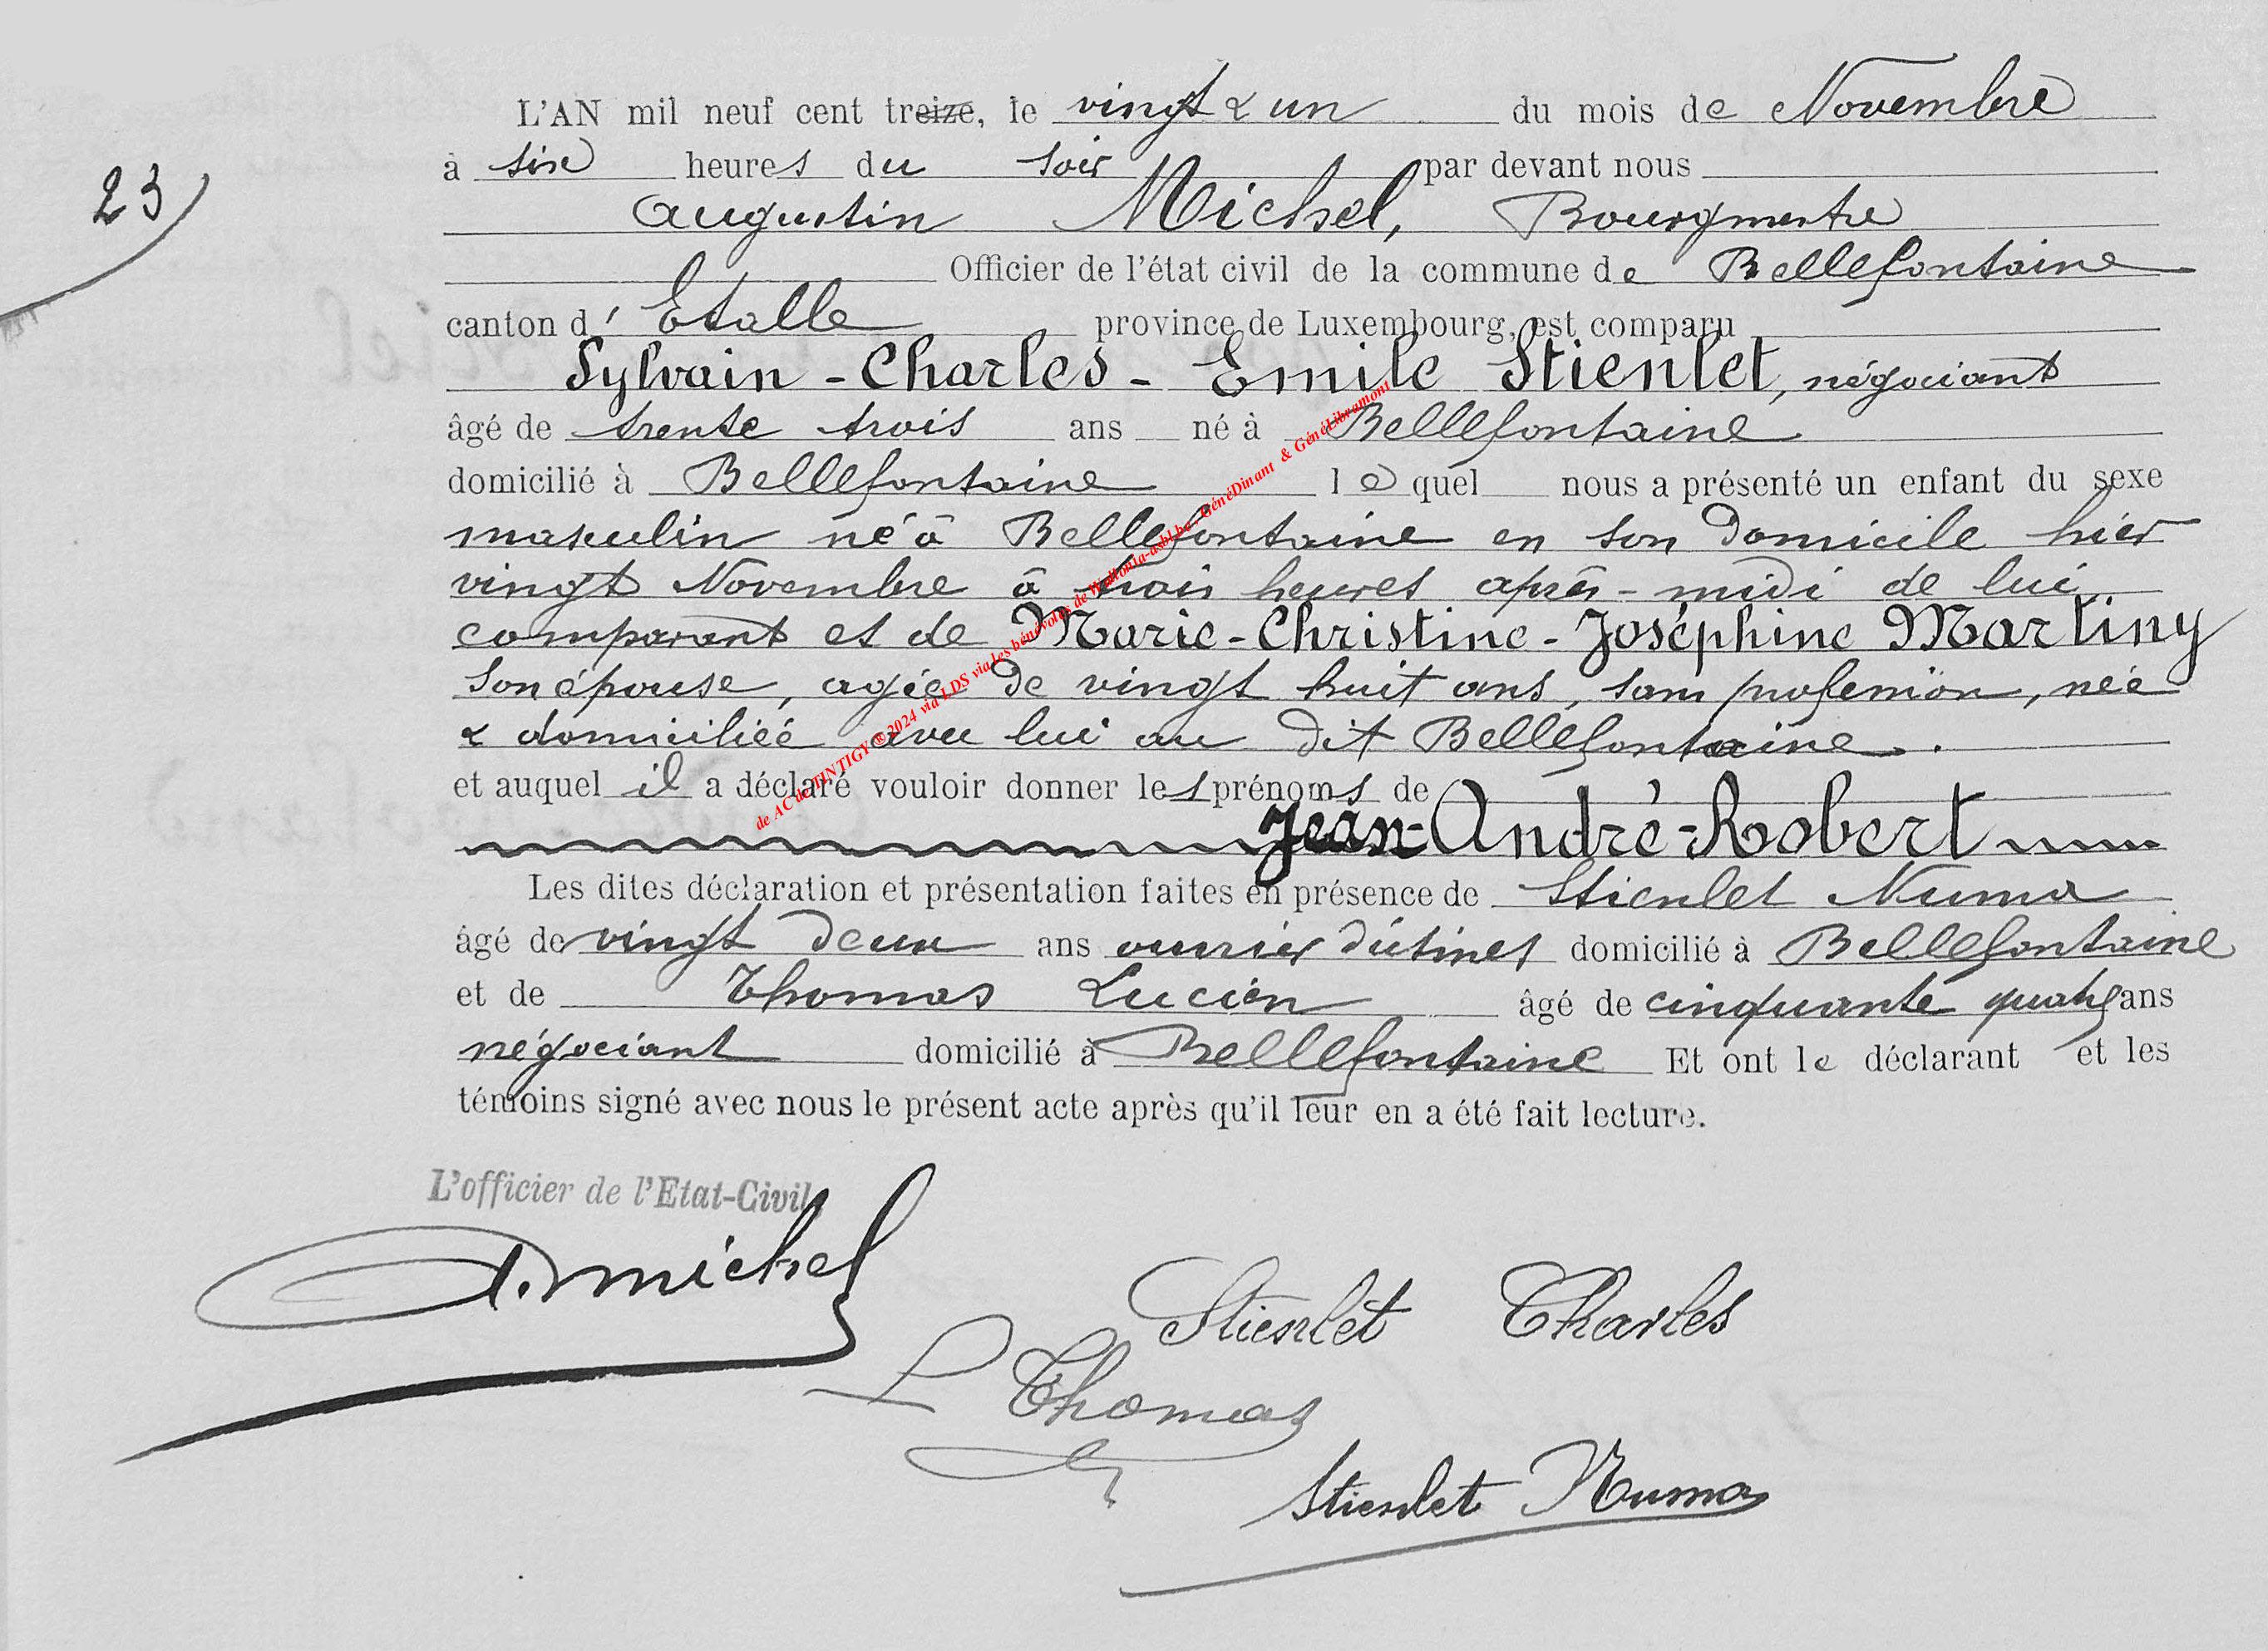 L'AN mil neuf cent treize, le vingt & un du mois de Novembre
23
à six heures du soir par devant nous
Augustin Michel, Bourgmestre
Officier de l'état civil de la commune de Bellefontaine
canton d' Etalle province de Luxembourg, est comparu
Sylvain - Charles - Emile Stienlet, négociant
âgé de trente trois ans né à Bellefontaine
domicilié à Bellefontaine le quel nous a présenté un enfant du sexe
masculin né à Bellefontaine en son domicile hier
vingt Novembre à trois heures après-midi de lui
comparant et de Marie-Christine-Joséphine Martiny
son épouse, agée de vingt huit ans, sans profession, née
& domiciliée avec lui au dit Bellefontaine.
et auquel il a déclaré vouloir donner les prénoms de
Jean-André-Robert
Les dites déclaration et présentation faites en présence de Stienlet Numa
âgé de vingt deux ans ouvrier d'usines domicilié à Bellefontaine
et de Thomas Lucien âgé de cinquante quatre ans
négociant domicilié à Bellefontaine Et ont le déclarant et les
témoins signé avec nous le présent acte après qu'il leur en a été fait lecture.
L'officier de l'Etat-Civil,
A. Michel
Stienlet Charles
L Thomas
Stienlet Numa
de AC de TINTIGY ® 2024 via LDS via Les bénévoles de Wallonia-asbl.be , GénéDinant & GénéLibramont